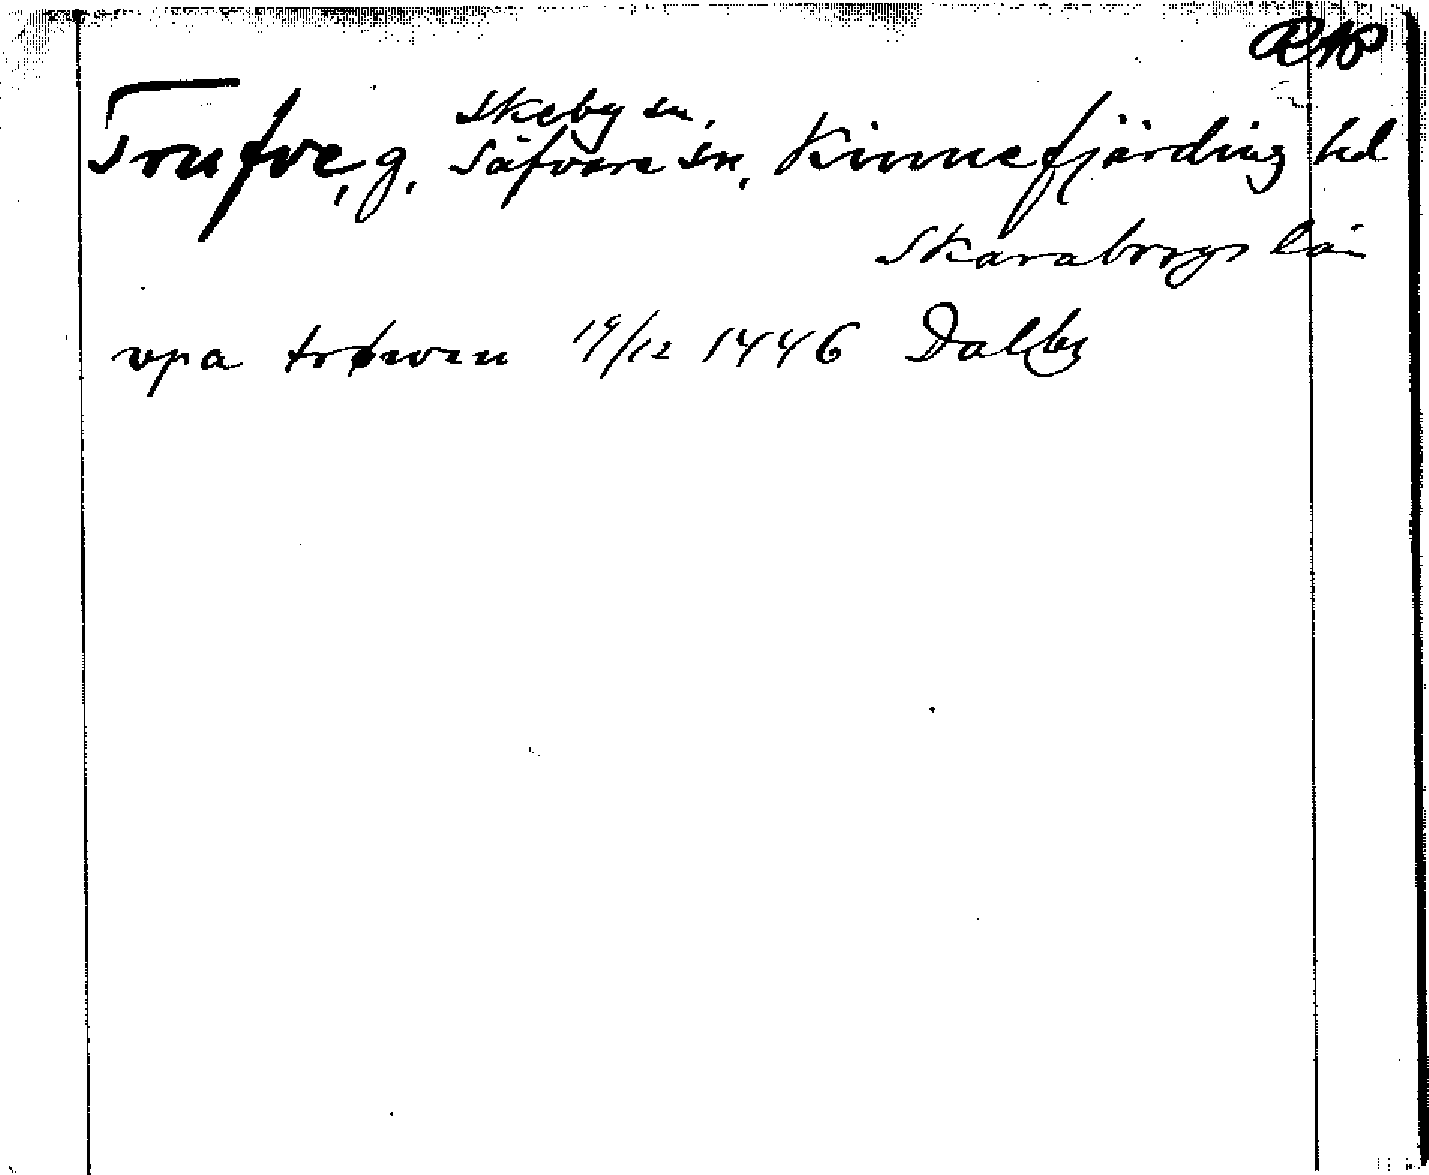 Trufve, g. Skeby sn, Säfvare sn, Kinnefjärding hd
Skaraborgs län
vpa trøwen 19/12 1446 Dalby